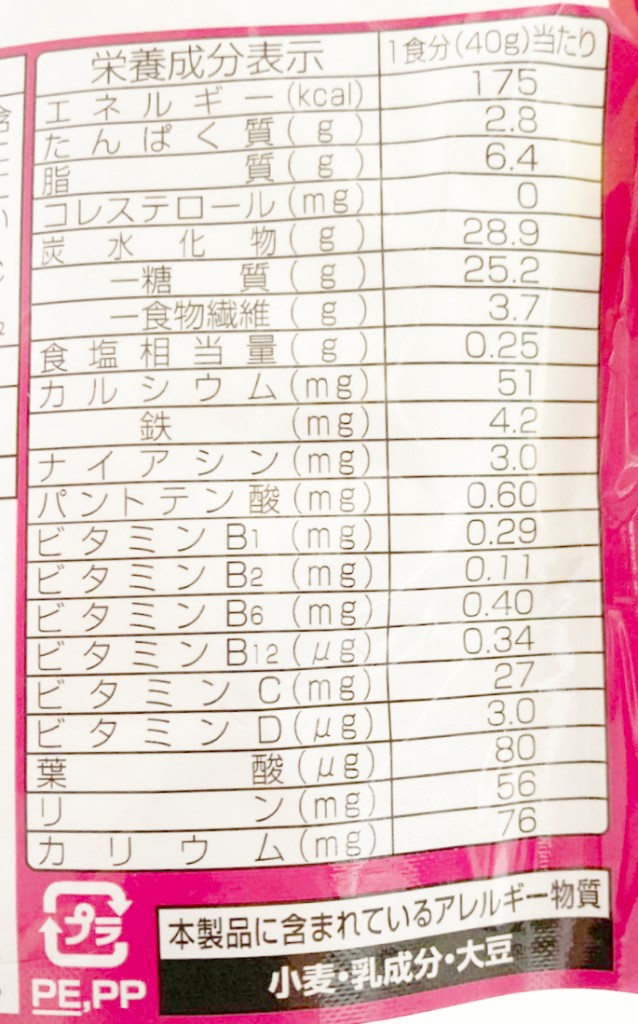 栄養成分表示 1食分(40g)当たり
エネルギー(kcal) 175
たんぱく質(g) 2.8
脂質(g) 6.4
コレステロール(mg) 0
炭水化物(g) 28.9
―糖質(g) 25.2
―食物繊維(g) 3.7
食塩相当量(g) 0.25
カルシウム(mg) 51
鉄(mg) 4.2
ナイアシン(mg) 3.0
パントテン酸(mg) 0.60
ビタミンB1(mg) 0.29
ビタミンB2(mg) 0.11
ビタミンB6(mg) 0.40
ビタミンB12(μg) 0.34
ビタミンC(mg) 27
ビタミンD(μg) 3.0
葉酸(μg) 80
リン(mg) 56
カリウム(mg) 76
プラ
PE,PP
本製品に含まれているアレルギー物質
小麦・乳成分・大豆